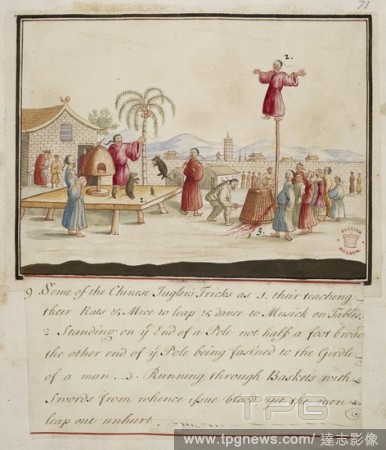 71
2.
1.
3.
BRITISH MUSEUM
9 Some of the Chinese Jugler's Tricks as 1. their teaching
their Rats & Mice to leap & dance to Musick on Tables
2. Standing on ÿ End of a Pole not half a foot broad
the other end of ÿ Pole being fast'ned to the Girdle
of a man. 3. Running through Baskets with
Swords from whence issue blood yet the men
leap out unhurt
TPG
www.tpgnews.com / 達志影像